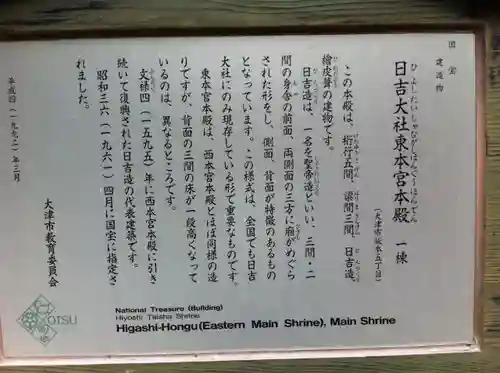 国宝
建造物
日吉大社東本宮本殿 一棟
ひよしたいしゃひがしほんぐうほんでん
(大津市坂本五丁目)
この本殿は、桁行五間、梁間三間、日吉造、
檜皮葺の建物です。
日吉造は、一名を聖帝造といい、三間・二
間の身舎の前面、両側面の三方に廂がめぐら
された形をし、側面、背面が特徴のあるもの
となっています。この様式は、全国でも日吉
大社にのみ現存している形で重要なものです。
東本宮本殿は、西本宮本殿とほぼ同様の造
りですが、背面の三間の床が一段高くなって
いるのは、異なるところです。
文禄四(一五九五)年に西本宮本殿に引き
続いて復興された日吉造の代表建築です。
昭和三六(一九六一)四月に国宝に指定さ
れました。
平成四(一九九二)年三月
大津市教育委員会
OTSU
National Treasure (Building)
Hiyoshi Taisha Shrine
Higashi-Hongu(Eastern Main Shrine), Main Shrine